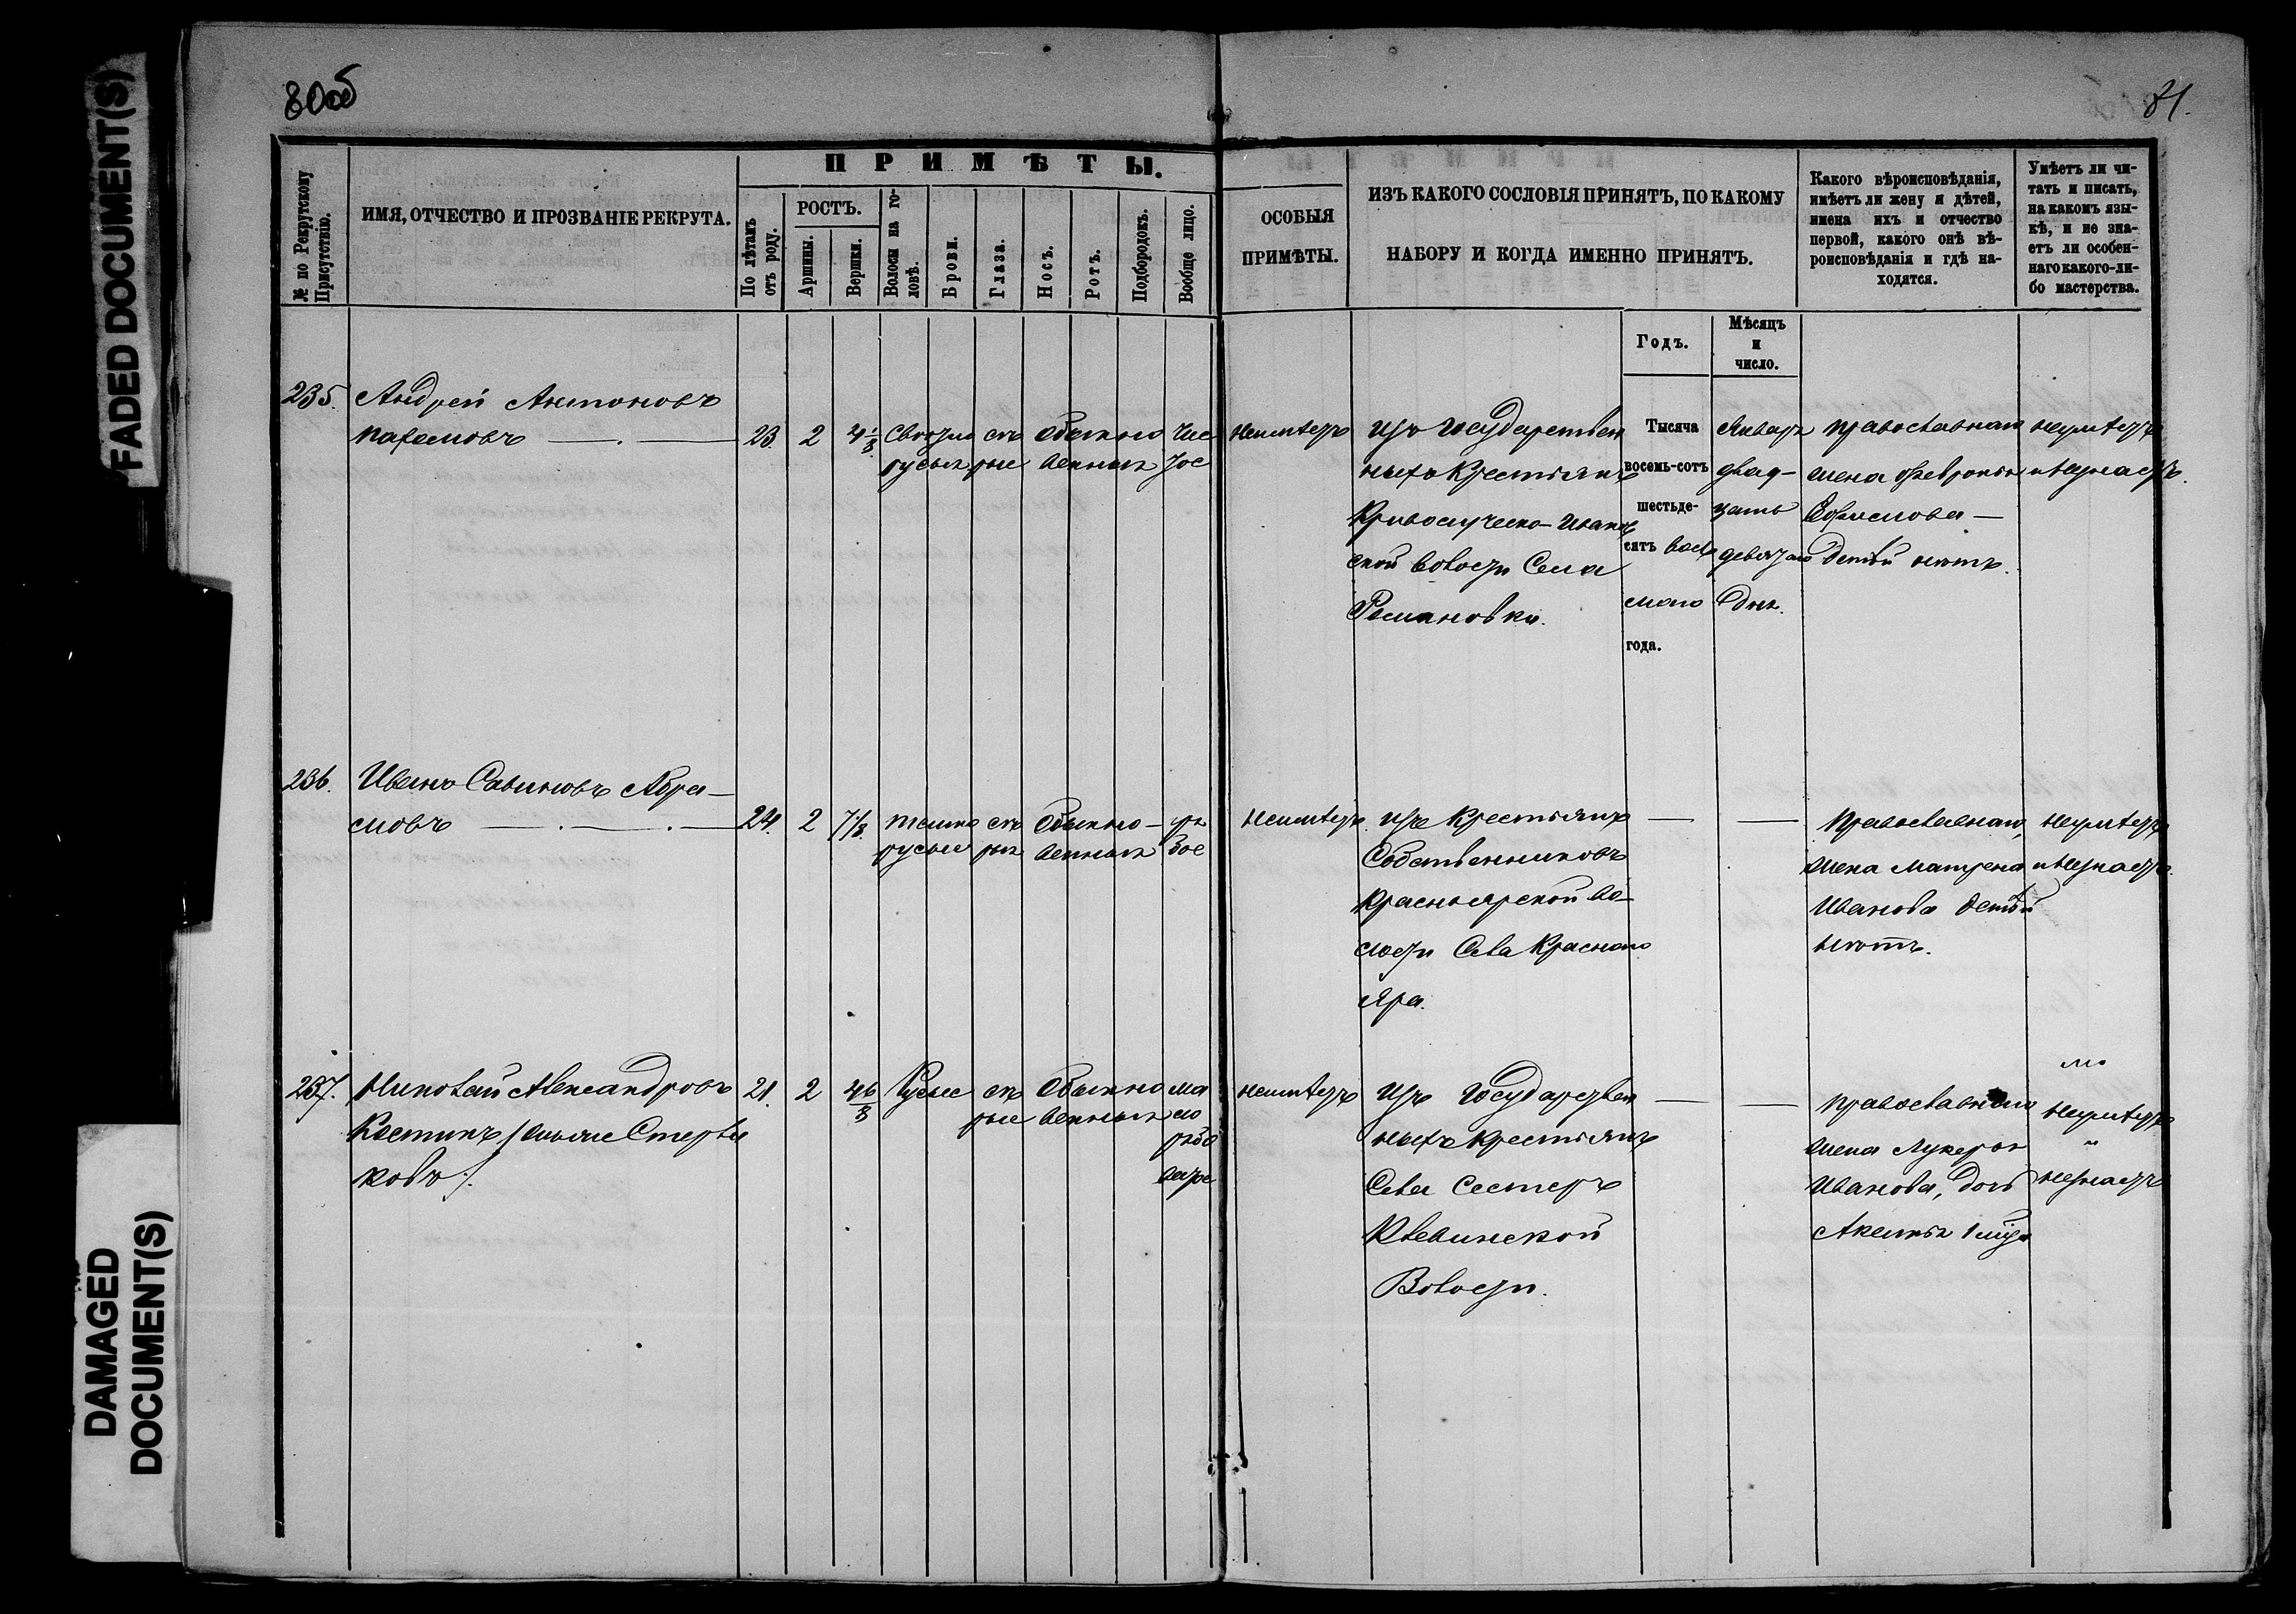 FADED DOCUMENT(S)
DAMAGED
DOCUMENT(S)
80об
81.
№ по Рекрутскому
Присутствію.
ИМЯ, ОТЧЕСТВО И ПРОЗВАНІЕ РЕКРУТА.
ПРИМѢТЫ.
По лѣтамъ
отъ роду.
РОСТЪ.
Аршины.
Вершки.
Волосы на го-
ловѣ.
Брови.
Глаза.
Носъ.
Ротъ.
Подбородокъ.
Вообще лицо.
ОСОБЫЯ
ПРИМѢТЫ.
ИЗЪ КАКОГО СОСЛОВІЯ ПРИНЯТЪ, ПО КАКОМУ
НАБОРУ И КОГДА ИМЕННО ПРИНЯТЪ.
Какого вѣроисповѣданія,
имѣетъ ли жену и дѣтей,
имена ихъ и отчество
первой, какого онѣ вѣ-
роисповѣданія и гдѣ на-
ходятся.
Умѣетъ ли чи-
тать и писать,
на какомъ язы-
кѣ, и не зна-
етъ ли особен-
наго какого-ли-
бо мастерства.
Годъ.
Мѣсяцъ
и
число.
235. Андрей Антоновъ
Пахомовъ — 23 2 4 1/8 свѣтло сѣ обыкно чис
русыя рые венныя тое
неимѣетъ
Изъ Государствен
ныхъ Крестьянъ
Криволуческо-Иванов
ской волости Села
Романовки.
Тысяча
восемь-сотъ
шестьде-
сятъ вось
маго
года.
Января
двад-
цать
девятаго
дня.
Православнаго
жена Февронья
Ефимова —
детей нѣтъ.
неумѣетъ
и незнаетъ.
236. Иванъ Савиновъ Абра-
мовъ — 24. 2 7 1/8 темно сѣ обыкно- ря
русые рыя венныя бое
неимѣетъ.
Изъ Крестьянъ
Собственниковъ
Красноярской во-
лости Села Краснаго
Яра.
Православнаго,
жена Матрена
Иванова детей
нѣтъ.
неумѣетъ
и незнаетъ.
237. Николай Александровъ 21. 2 4 6/8 Русые сѣ обыкно ма
Костинъ рые венныя ло
ковъ/. рябо
неимѣетъ
Изъ Государствен
ныхъ крестьянъ
Села Сестеръ
Клевинской
Волости.
Православнаго
жена Лукерья
Иванова, дочь
неумѣетъ
и
незнаетъ